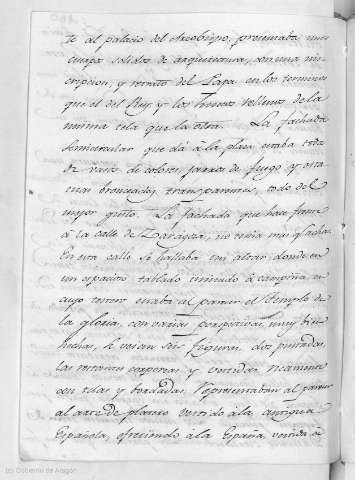 te al palacio del Arzobispo, presentaba un
cuerpo solido de arquitectura, con una ins-
cripcion, y retrato del Papa en los terminos
que el del Rey, y los huecos rellenos de la
misma tela que la otra. La fachada
semicircular que dá á la plaza estaba toda
de vasos de colores, jarras de fuego, y esta-
tuas bronceadas, transparentes, todo del
mejor gusto. La fachada que hace frente
á la calle de Zaragoza, no tenia mas q.
En esta calle se hallaba un altar donde en
un espacioso tablado imitando á campiña en
cuyo centro estaba al parecer el Templo de
la gloria, con varias perspectivas, muy bien
hechas, se veian seis figuras, dos pintadas,
las restantes corporeas y vestidas ricamente
con telas y bordados. Representaban al parecer
al arte de platero vestido á la antigua
Española, ofreciendo á la España, vestida de
(c) Gobierno de Aragón